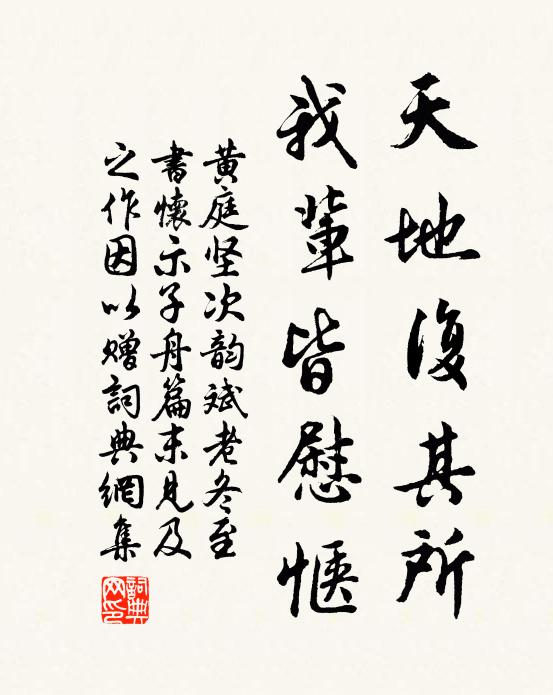 天地復其所
我輩皆慰愜
黄庭坚次韵斌老冬至
書懷示子舟篇末見及
之作因以贈詞典網集
詞典網印